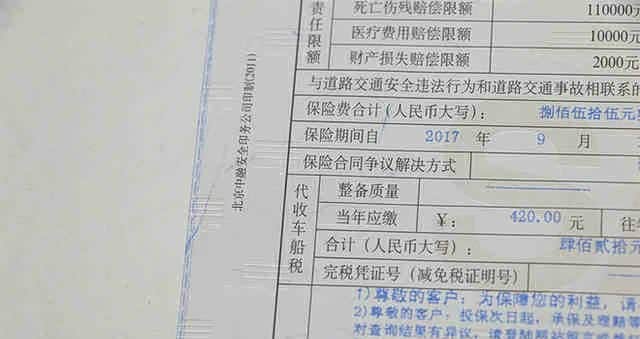 责任限额
死亡伤残赔偿限额 110000元
医疗费用赔偿限额 10000元
财产损失赔偿限额 2000元
与道路交通安全违法行为和道路交通事故相联系的
保险费合计(人民币大写): 捌佰伍拾伍元
保险期间自 2017 年 9 月
保险合同争议解决方式
代收车船税
整备质量
当年应缴 ¥: 420.00 元 往
合计(人民币大写): 肆佰贰拾元
完税凭证号(减免税证明号)
1)尊敬的客户:为保障您的利益,请
2)尊敬的客户:投保次日起,承保及理赔等
对查询结果有异议,请登陆网站留言或
北京中融安全印务公司印制(2011)